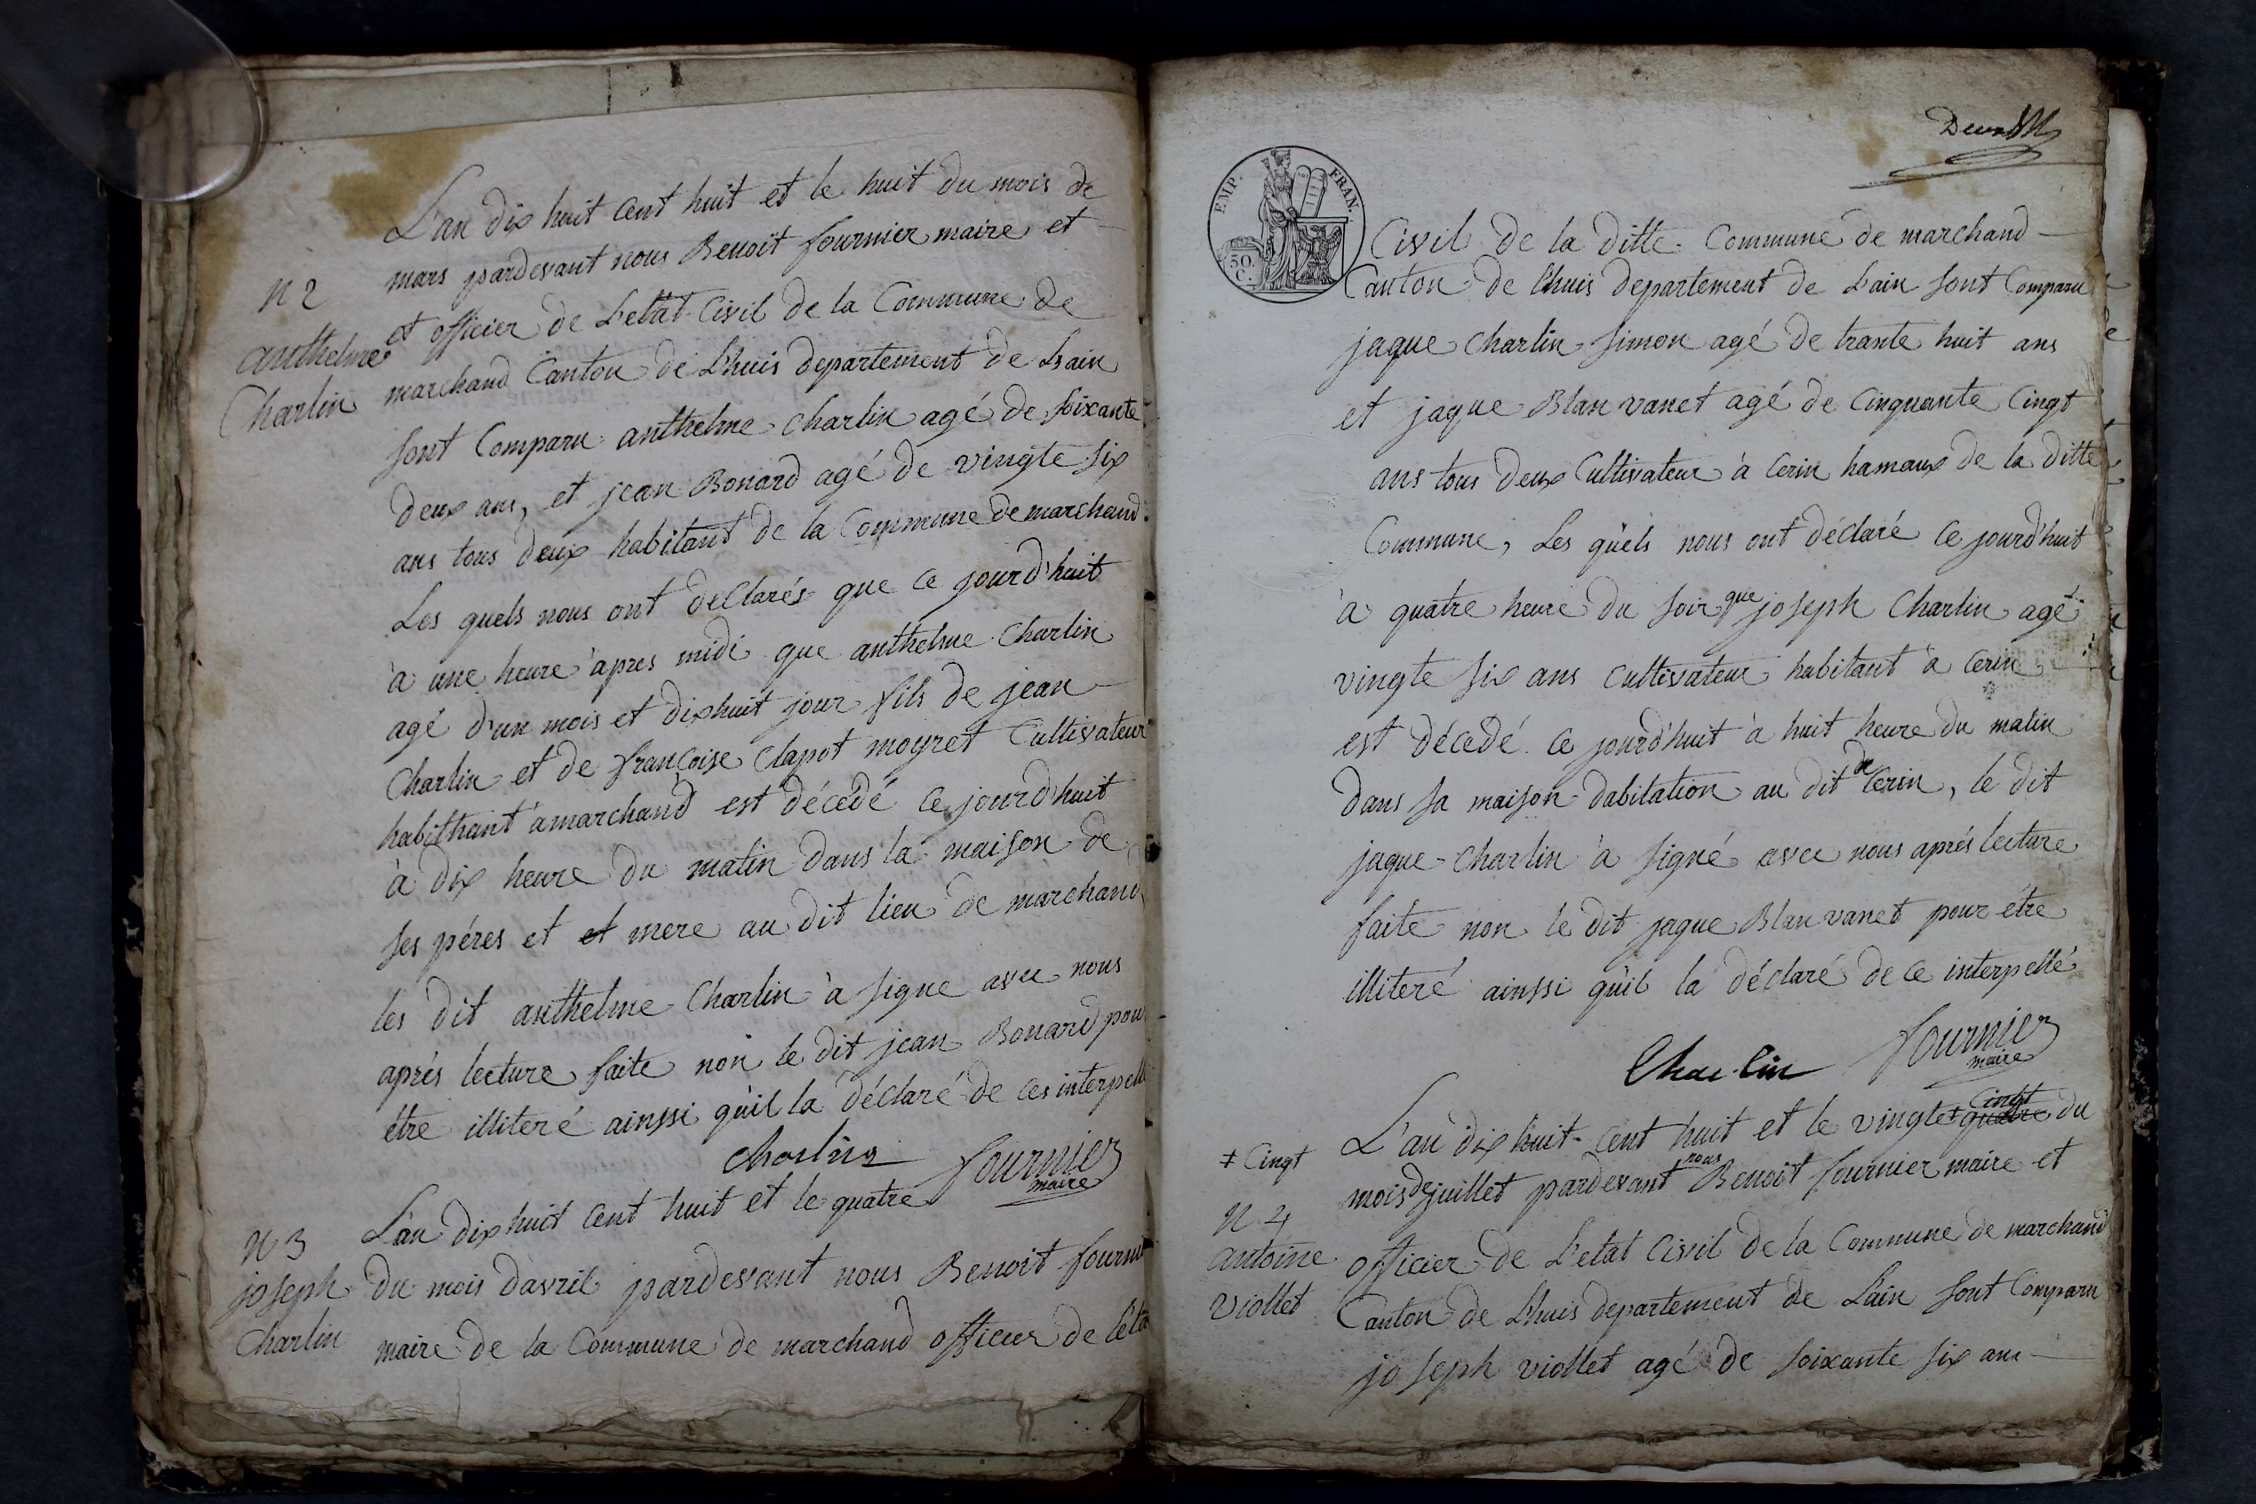 L'an dix huit cent huit et le huit du mois de
mars pardevant nous Benoit fournier maire et
N 2
et officier de L'etat Civil de la Commune de
anthelme
Charlin
marchand Canton de Lhuis departement de Lain
sont Comparu anthelme charlin agé de soixante
deux ans, et jean Bonard agé de vingte six
ans tous deux habitant de la Commune de marchand.
Les quels nous ont declarés que ce jourd'huit
à une heure àpres midi que anthelme Charlin
agé d'un mois et dixhuit jour fils de jean
Charlin et de françoise Clapot moyret Cultivateur
habithant àmarchand est décedé ce jourd'huit
à dix heure du matin dans la maison de
ses péres et et mere au dit lieu de marchand
les dit anthelme Charlin à signe avec nous
aprés lecture faite non le dit jean Bonard pou
etre illiteré ainssi qu'il la déclaré de ces interpellé
charlin fournier
maire
N 3
joseph
Charlin
L'an dix huit cent huit et le quatre
du mois davril pardevant nous Benoit fournie
maire de la Commune de marchand officier de l'éta
EMP. FRAN.
50
C.
Civil de la ditte Commune de marchand
Canton de Lhuis departement de Lain sont Comparu
jaque charlin simon agé de trante huit ans
et jaque Blanvanet agé de Cinquante Cingt
ans tous deux Cultivateur à Cerin hamaux de la ditte
Commune, Les quels nous ont déclaré ce jourd'huit
à quatre heure du soir que joseph Charlin agé
vingte six ans cultivateur habitant à Cerin
est décedé ce jourd'huit à huit heure du matin
dans sa maison dabitation au dit de Cerin, le dit
jaque Charlin à signé avec nous aprés lecture
faite non le dit jaque Blanvanet pour étre
illiteré ainssi qu'il la déclaré de ce interpellé
Charlin fournier
maire
L'an dix huit cent huit et le vingte quatre cingt du
‡ Cingt
mois de juillet pardevant nous Benoit fournier maire et
N 4
antoine
Viollet
officier de L'etat Civil de la Commune de marchand
Canton de Lhuis departement de Lain sont Comparu
joseph viollet agé de soixante six ans